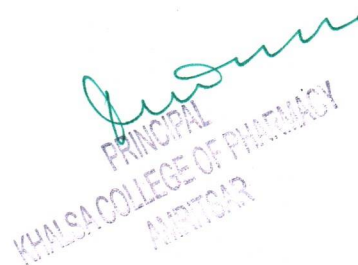 PRINCIPAL
KHALSA COLLEGE OF PHARMACY
AMRITSAR